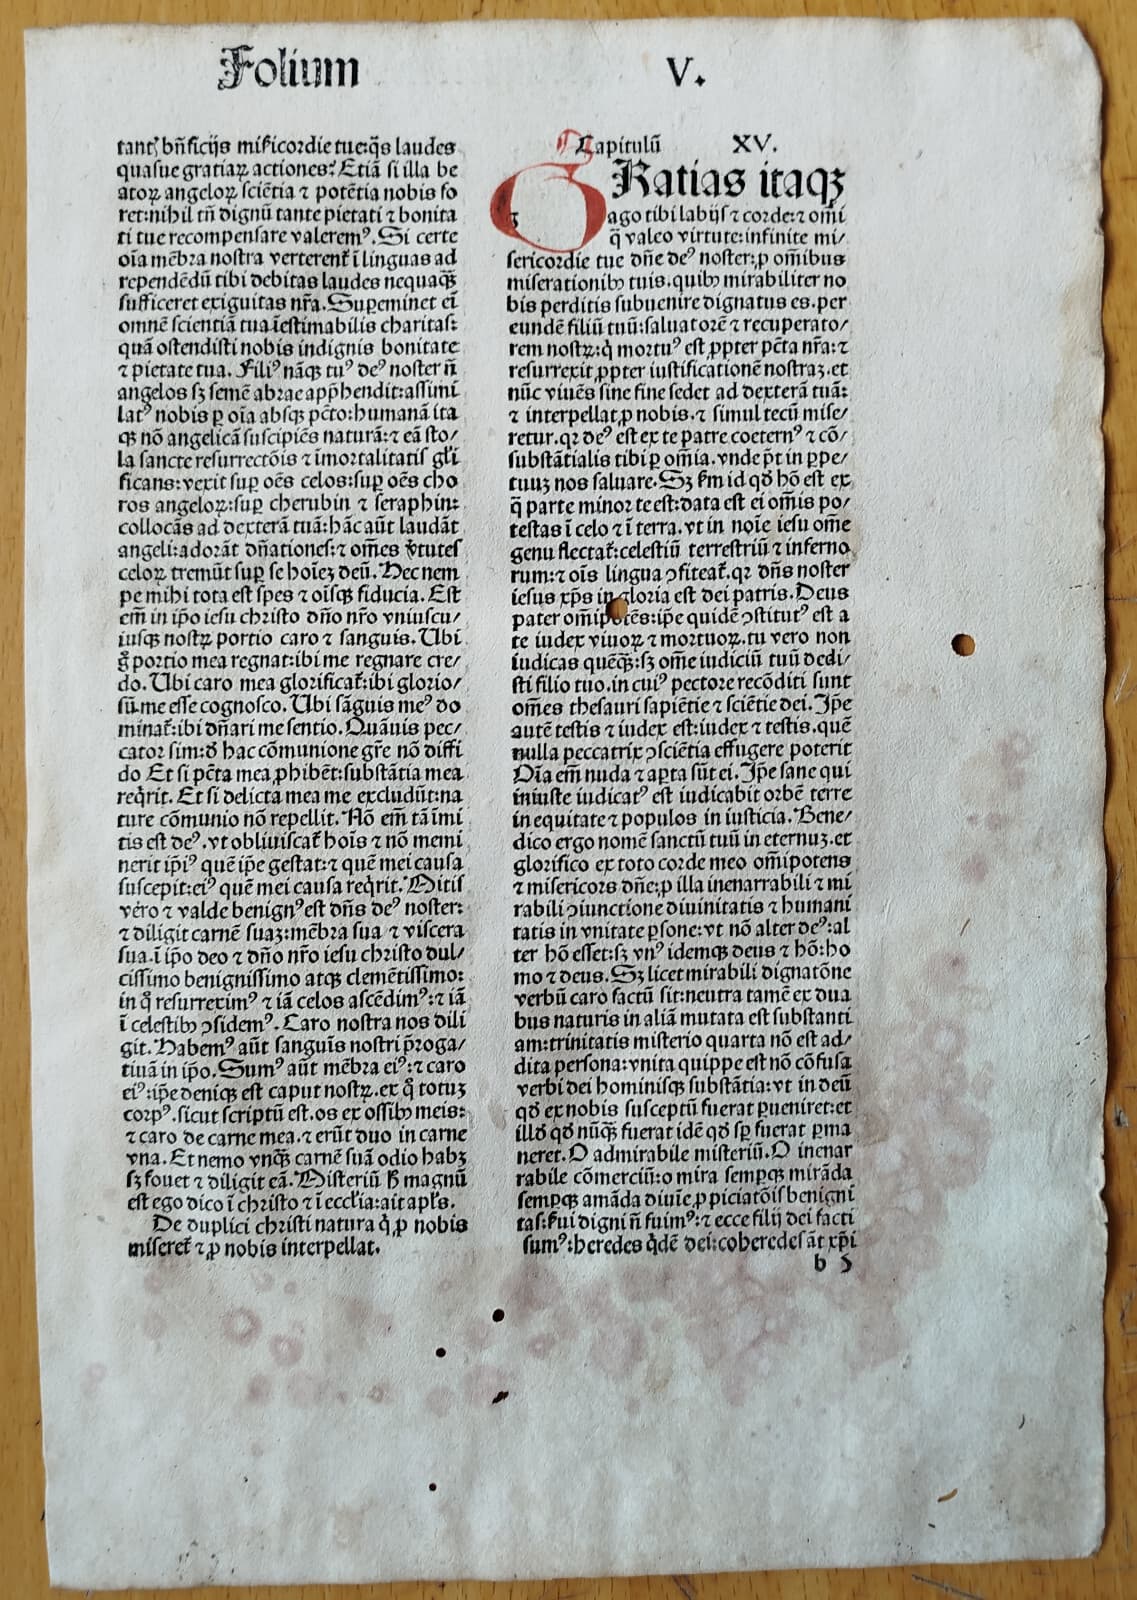 Folium V.
tantꝭ bn̄ficijs mĩcordie tue:q̃s laudes
quasue gratiaꝝ actiones? Etiã si illa be
atoꝝ angeloꝝ sciẽtia ⁊ potẽtia nobis fo
ret:nihil tñ dignũ tante pietati ⁊ bonita
ti tue recompensare valeremꝰ. Si certe
oĩa mẽbra nostra verterent̃ ĩ linguas ad
rependẽdũ tibi debitas laudes nequaq̃ꝫ
sufficeret exiguitas nr̃a. Suꝑeminet eĩ
omnẽ scientiã tua ĩestimabilis charitas:
quã ostendisti nobis indignis bonitate
⁊ pietate tua. Filiꝰ nãqꝫ tuꝰ deꝰ noster ñ
angelos sꝫ semẽ abrae app̃hendit:assimi
latꝰ nobis ꝑ oĩa absqꝫ pctõ:humanã ita
qꝫ nõ angelicã suscipiẽs naturã:⁊ eã sto/
la sancte resurrectõis ⁊ ĩmortalitatis gl̃i
ficans:vexit suꝑ oẽs celos:suꝑ oẽs cho
ros angeloꝝ:suꝑ cherubin ⁊ seraphin:
collocãs ad dexterã tuã:hãc aũt laudãt
angeli:adorãt dñationes:⁊ om̃es ṽtutes
celoꝝ tremũt suꝑ se hoĩeꝫ deũ. Hec nem
pe mihi tota est spes ⁊ oĩsqꝫ fiducia. Est
em̃ in ip̃o iesu christo dño nr̃o vniuscu/
iusqꝫ nostꝝ portio caro ⁊ sanguis. Ubi
g̊ portio mea regnat:ibi me regnare cre/
do. Ubi caro mea glorificat̃:ibi glorio/
sũ me esse cognosco. Ubi sãguis meꝰ do
minat̃:ibi dñari me sentio. Quãuis pec/
cator sim:d̊ hac cõmunione gr̃e nõ diffi
do Et si pctã mea ꝓhibẽt:substãtia mea
req̃rit. Et si delicta mea me excludũt:na
ture cõmunio nõ repellit. Nõ em̃ tã ĩmi
tis est deꝰ. vt obliuiscat̃ hoĩs ⁊ nõ memi
nerit ip̃iꝰ quẽ ip̃e gestat:⁊ quẽ mei causa
suscepit:eiꝰ quẽ mei causa req̃rit. Mitis
vero ⁊ valde benignꝰ est dñs deꝰ noster:
⁊ diligit carnẽ suaꝫ:mẽbra sua ⁊ viscera
sua. ĩ ip̃o deo ⁊ dño nr̃o iesu christo dul/
cissimo benignissimo atqꝫ clemẽtissimo:
in q̊ resurreximꝰ ⁊ iã celos ascẽdimꝰ:⁊ iã
ĩ celestibꝰ ꝯsidemꝰ. Caro nostra nos dili
git. Habemꝰ aũt sanguis nostri p̃roga/
tiuã in ip̃o. Sumꝰ aũt mẽbra eiꝰ:⁊ caro
eiꝰ:ip̃e deniqꝫ est caput nostꝝ. ex q̊ totuꝫ
corpꝰ. sicut scriptũ est. os ex ossibꝰ meis:
⁊ caro de carne mea. ⁊ erũt duo in carne
vna. Et nemo vnq̃ꝫ carnẽ suã odio habꝫ
sꝫ fouet ⁊ diligit eã. Misteriũ h̊ magnũ
est ego dico ĩ christo ⁊ ĩ eccl̃ia:ait apl̃s.
De duplici christi natura q̊ ꝓ nobis
miseret̃ ⁊ ꝓ nobis interpellat.
Capitulũ XV.
GRatias itaqꝫ
ago tibi labijs ⁊ corde:⁊ om̃i
q̃ valeo virtute:infinite mi/
sericordie tue dñe deꝰ noster:ꝓ om̃ibus
miserationibꝰ tuis. quibꝰ mirabiliter no
bis perditis subuenire dignatus es. per
eundẽ filiũ tuũ:saluatorẽ ⁊ recuperato/
rem nostꝝ:q̊ mortuꝰ est ꝓpter pctã nr̃a:⁊
resurrexit ꝓpter iustificationẽ nostraꝫ. et
nũc viuẽs sine fine sedet ad dexterã tuã:
⁊ interpellat ꝓ nobis. ⁊ simul tecũ mise/
retur. qꝛ deꝰ est ex te patre coeternꝰ ⁊ cõ/
substãtialis tibi ꝑ om̃ia. vnde p̃t in ꝑpe/
tuuꝫ nos saluare. Sꝫ k̃m id qd̊ hõ est ex
q̃ parte minor te est:data est ei om̃is po/
testas ĩ celo ⁊ ĩ terra. vt in noĩe iesu om̃e
genu flectat̃:celestiũ terrestriũ ⁊ inferno
rum:⁊ oĩs lingua ꝯfiteat̃. qꝛ dñs noster
iesus xp̃s in gloria est dei patris. Deus
pater om̃ipotẽs:ip̃e quidẽ ꝯstitutꝰ est a
te iudex viuoꝝ ⁊ mortuoꝝ. tu vero non
iudicas quẽq̃ꝫ:sꝫ om̃e iudiciũ tuũ dedi/
sti filio tuo. in cuiꝰ pectore recõditi sunt
om̃es thesauri sapiẽtie ⁊ sciẽtie dei. Ip̃e
autẽ testis ⁊ iudex est:iudex ⁊ testis. quẽ
nulla peccatrix ꝯsciẽtia effugere poterit
Oĩa em̃ nuda ⁊ aꝑta sũt ei. Ip̃e sane qui
iniuste iudicatꝰ est iudicabit orbẽ terre
in equitate ⁊ populos in iusticia. Bene/
dico ergo nomẽ sanctũ tuũ in eternuꝫ. et
glorifico ex toto corde meo om̃ipotens
⁊ misericors dñe:ꝓ illa inenarrabili ⁊ mi
rabili ꝯiunctione diuinitatis ⁊ humani
tatis in vnitate ꝑsone:vt nõ alter deꝰ:al
ter hõ esset:sꝫ vnꝰ idemqꝫ deus ⁊ hõ:ho
mo ⁊ deus. Sꝫ licet mirabili dignatõne
verbũ caro factũ sit:neutra tamẽ ex dua
bus naturis in aliã mutata est substanti
am:trinitatis misterio quarta nõ est ad/
dita persona:vnita quippe est nõ cõfusa
verbi dei hominisqꝫ substãtia:vt in deũ
qd̊ ex nobis susceptũ fuerat ꝑueniret:et
illd̊ qd̊ nũq̃ꝫ fuerat idẽ qd̊ sꝑ fuerat ꝑma
neret. O admirabile misteriũ. O inenar
rabile cõmerciũ:o mira semꝑqꝫ mirãda
semꝑqꝫ amãda diuĩe ꝓpiciatõis benigni
tas:ẜui digni ñ fuimꝰ:⁊ ecce filij dei facti
sumꝰ:heredes q̃dẽ dei:coheredes ãt xp̃i
b 5